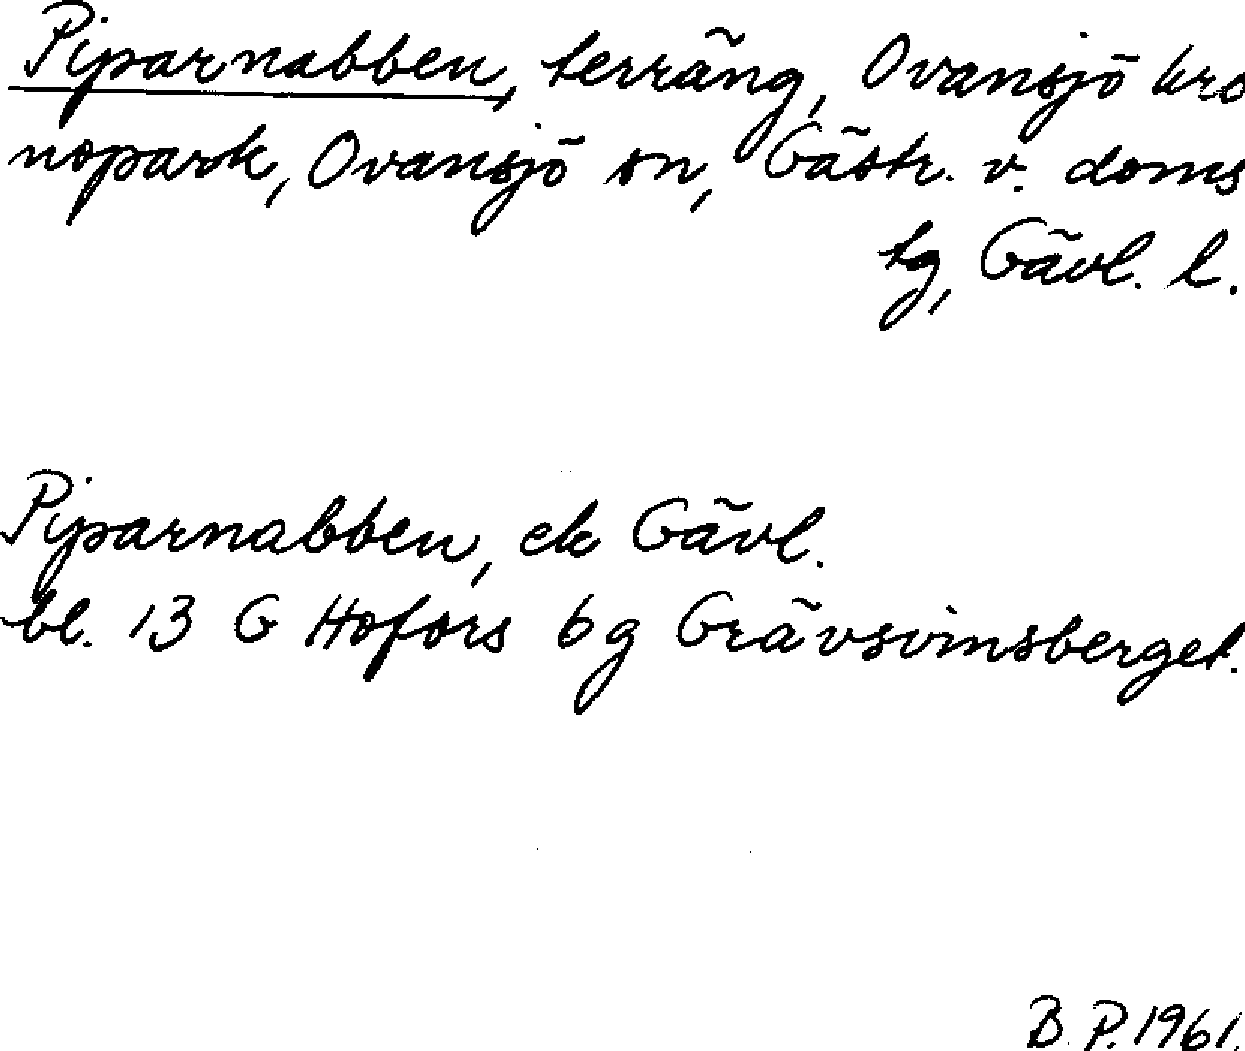 Piparnabben, terräng, Ovansjö kro
nopark, Ovansjö sn, Gästr. v. doms
tg, Gävl. l.
Piparnabben, ek Gävl.
bl. 13 G Hofors 6g Grävsvinsberget.
B. P. 1961.